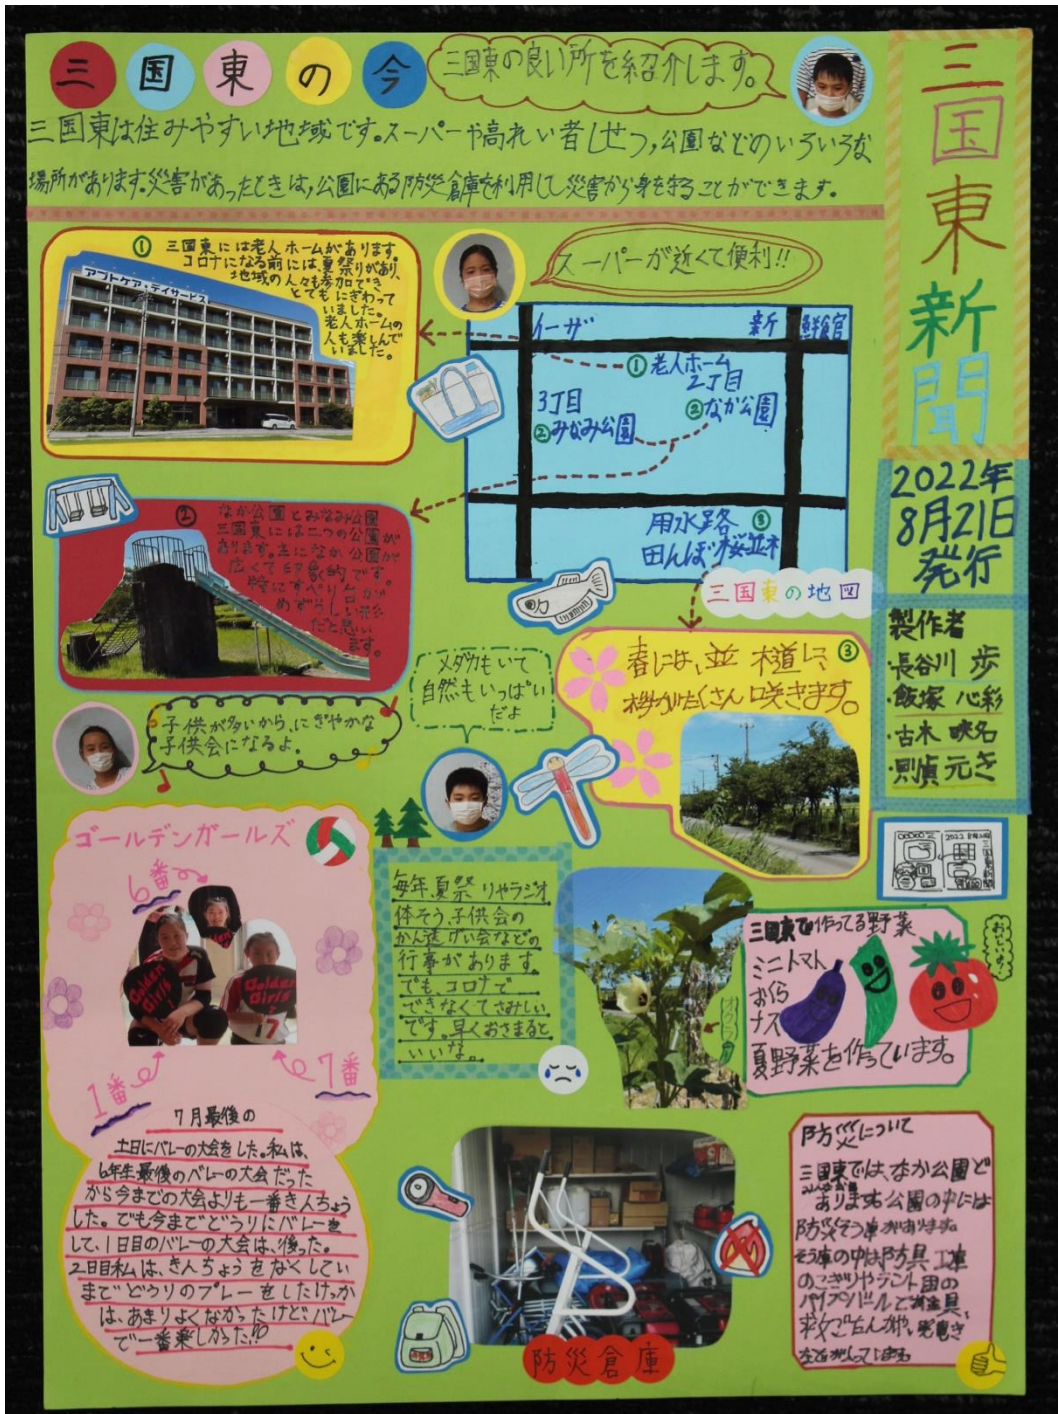 三国東新聞
2022年
8月21日
発行
製作者
・長谷川 歩
・飯塚 心彩
・古木 映名
三国東の今
三国東の良い所を紹介します。
三国東は住みやすい地域です。スーパーや高れい者しせつ,公園などのいろいろな
場所があります。災害があったときは,公園にある防災倉庫を利用して災害から身を守ることができます。
① 三国東には老人ホームがあります。
コロナになる前には、夏祭りがあり、
地域の人々も参加でき
とてもにぎわって
いました。
老人ホームの
人も楽しんで
いました。
アブトケア・デイサービス
スーパーが近くて便利!!
イーザ 新鮮館
①老人ホーム
2丁目
②なか公園
3丁目
②みなみ公園
用水路 ③
田んぼ 桜並木
三国東の地図
② なか公園とみなみ公園
三国東には二つの公園が
あります。主になか公園が
広くて印象的です。
特にすべり台が
めずらしい形
だと思い
ます。
春には、並木道に、③
桜がたくさん咲きます。
メダカもいて
自然もいっぱい
だよ
子供が多いから、にぎやかな
子供会になるよ。
ゴールデンガールズ
6番
Golden
Girls
Golden
Girls
17
1番
7番
7月最後の
土日にバレーの大会をした。私は、
6年生最後のバレーの大会だった
から今までの大会よりも一番きんちょう
した。でも今までどうりにバレーを
して、1日目のバレーの大会は、終った。
2日目私は、きんちょうをなくしてい
までどうりのプレーをしたけっか
は、あまりよくなかったけど、バレー
で一番楽しかった!!
毎年、夏祭りやラジオ
体そう、子供会の
かん送げい会などの
行事があります。
でも、コロナで
できなくてさみしい
です。早くおさまると
いいな。
オクラ
三国東で作ってる野菜
ミニトマト
おくら
ナス
夏野菜を作っています。
おいしいよ!
防災倉庫
防災について
三国東では、なか公園と
みなみ公園
あります。公園の中には
防災そう庫があります。
そう庫の中は防具、工具
のこぎりやテント
パイプ